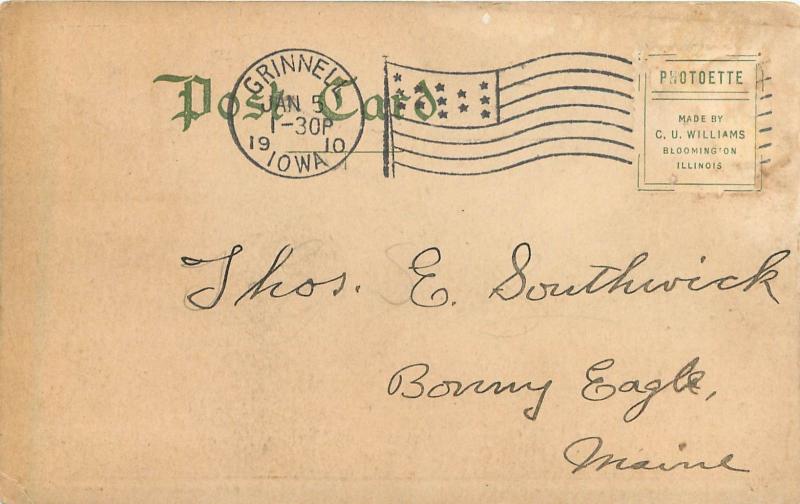 Post Card
GRINNELL
JAN 5
1-30P
19 10
IOWA
PHOTOETTE
MADE BY
C. U. WILLIAMS
BLOOMINGTON
ILLINOIS
Thos. E. Southwick
Bonny Eagle,
Maine